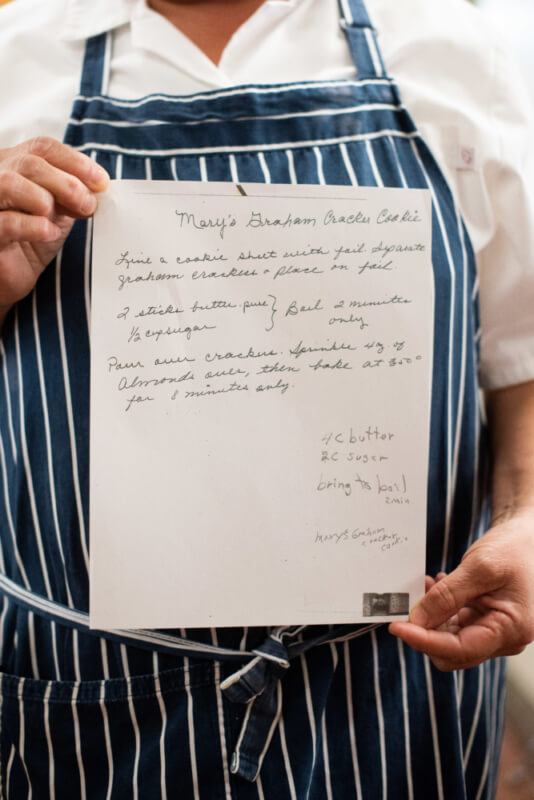 Mary's Graham Cracker Cookie
Line a cookie sheet with foil. Separate
graham crackers & place on foil.
2 sticks butter - pure } Boil 2 minutes
1/2 cup sugar only
Pour over crackers. Sprinkle 4 oz of
Almonds over, then bake at 350°
for 8 minutes only.
4 C butter
2 C sugar
bring to boil
2 min
Mary's Graham
cracker
cookie